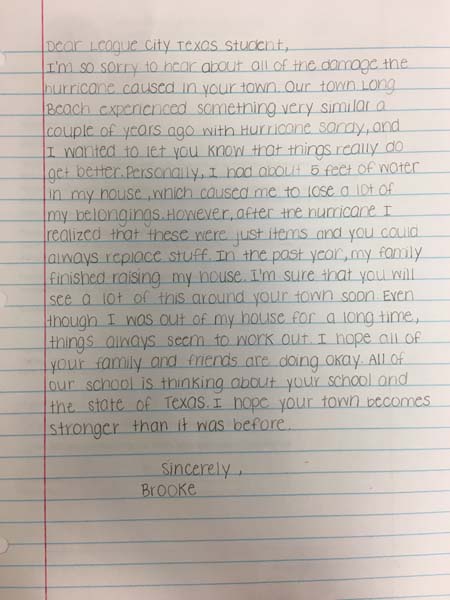 Dear League City Texas Student,
I'm so sorry to hear about all of the damage the
hurricane caused in your town. Our town Long
Beach experienced something very similar a
couple of years ago with Hurricane Sandy, and
I wanted to let you know that things really do
get better. Personally, I had about 5 feet of water
in my house, which caused me to lose a lot of
my belongings. However, after the hurricane I
realized that these were just items and you could
always replace stuff. In the past year, my family
finished raising my house. I'm sure that you will
see a lot of this around your town soon. Even
though I was out of my house for a long time,
things always seem to work out. I hope all of
your family and friends are doing okay. All of
our school is thinking about your school and
the state of Texas. I hope your town becomes
stronger than it was before.
Sincerely,
Brooke